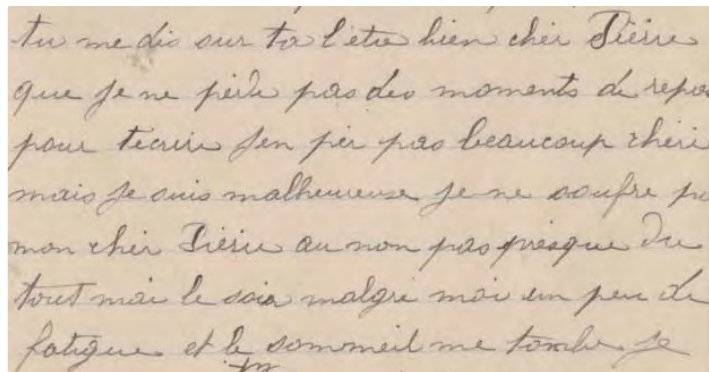 tu me dis sur ta létre bien cher Pière
que je ne pèrde pas des moments de repos
pour técrire jen per pas beaucoup chéri
mais je suis malheureuse je ne soufre pa
mon cher Pière au non pas presque du
tout mai le soir malgré moi un peu de
fatigue et le sommeil me tombe je